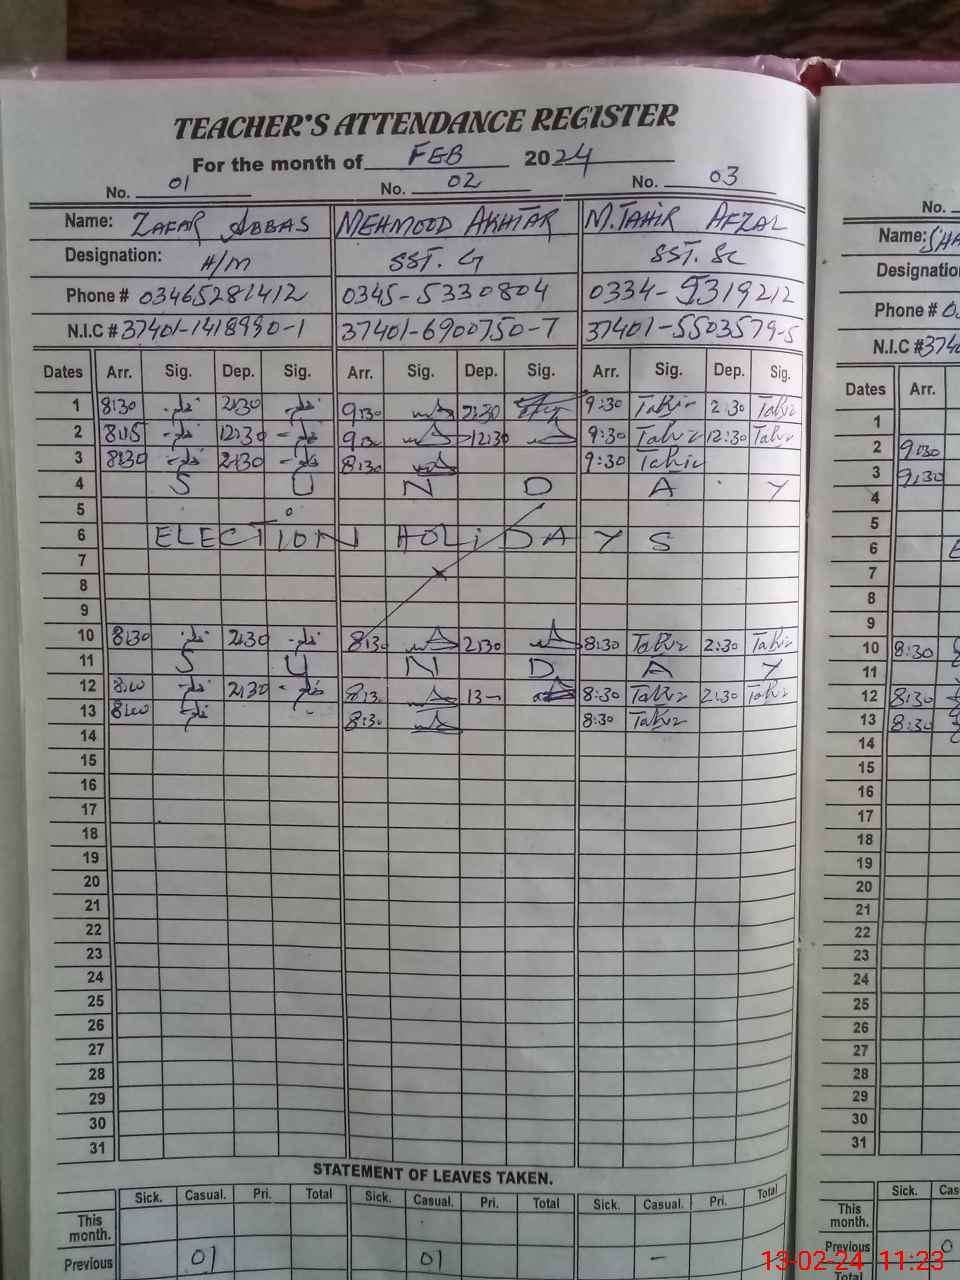 TEACHER'S ATTENDANCE REGISTER
For the month of FEB 2024
No. 01 No. 02 No. 03
Name: ZAFAR ABBAS MEHMOOD AKHTAR M. TAHIR AFZAL
Designation: H/M SST. G SST. Sc
Phone # 03465281412 0345-5330804 0334-5319212
N.I.C # 37401-1418990-1 37401-6900750-7 37401-5503579-5
Dates Arr. Sig. Dep. Sig. Arr. Sig. Dep. Sig. Arr. Sig. Dep. Sig.
1 8:30 2:30 9:30 2:30 9:30 Tahir 2:30 Tahir
2 8:15 12:30 9:30 12:30 9:30 Tahir 12:30 Tahir
3 8:30 2:30 8:30 9:30 Tahir
4 S U N D A Y
5
6 ELECTION HOLiDAYS
7
8
9
10 8:30 2:30 8:30 2:30 8:30 Tahir 2:30 Tahir
11 S U N D A Y
12 8:00 2:30 8:30 8:30 Tahir 2:30 Tahir
13 8:00 8:30 8:30 Tahir
14
15
16
17
18
19
20
21
22
23
24
25
26
27
28
29
30
31
STATEMENT OF LEAVES TAKEN.
Sick. Casual. Pri. Total Sick. Casual. Pri. Total Sick. Casual. Pri. Total
This month.
Previous 01 01 –
No.
Name: SHA
Designatio
Phone # 0
N.I.C # 3740
Dates Arr.
1
2 9:30
3 9:30
4
5
6 E
7
8
9
10 8:30
11
12 8:30
13 8:30
14
15
16
17
18
19
20
21
22
23
24
25
26
27
28
29
30
31
Sick. Cas
This month.
Previous 0
Total
13-02-24 11:23